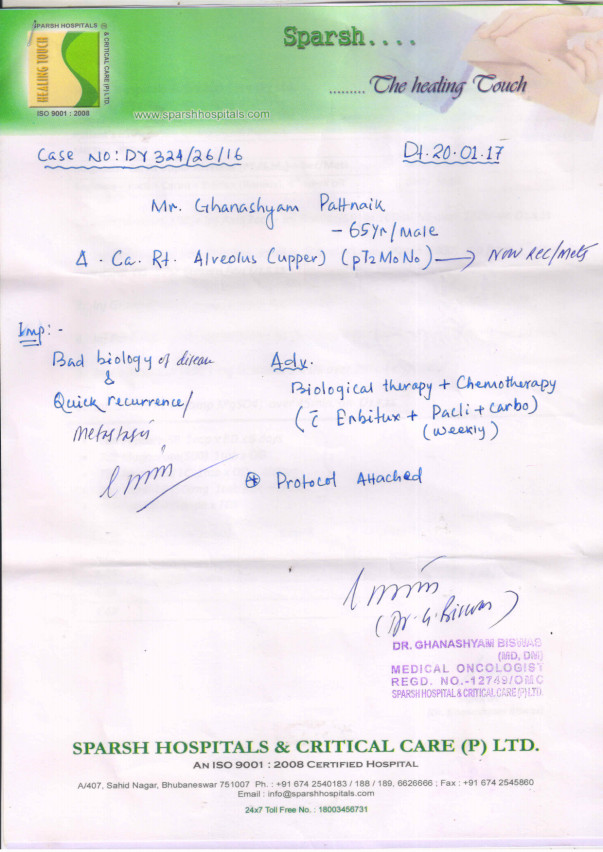 SPARSH HOSPITALS
& CRITICAL CARE (P) LTD.
HEALING TOUCH
ISO 9001 : 2008
Sparsh....
......... The healing Touch
www.sparshhospitals.com
Case No: DY 324/26/16
Dt. 20.01.17
Mr. Ghanashyam Pattnaik
- 65Yr/Male
Δ . Ca. Rt. Alveolus (upper) (pT2M0N0) → NOW REC/Mets
Imp: -
Bad biology of disease
&
Quick recurrence/
Metastasis
Adv.
Biological therapy + Chemotherapy
(c̄ Erbitux + Pacli + Carbo)
(weekly)
⊛ Protocol Attached
(Dr. G. Biswas)
DR. GHANASHYAM BISWAS
(MD, DM)
MEDICAL ONCOLOGIST
REGD. NO.-12749/OMC
SPARSH HOSPITAL & CRITICAL CARE (P) LTD.
SPARSH HOSPITALS & CRITICAL CARE (P) LTD.
AN ISO 9001 : 2008 CERTIFIED HOSPITAL
A/407, Sahid Nagar, Bhubaneswar 751007 Ph. : +91 674 2540183 / 188 / 189, 6626666 ; Fax : +91 674 2545860
Email : info@sparshhospitals.com
24x7 Toll Free No. : 18003456731